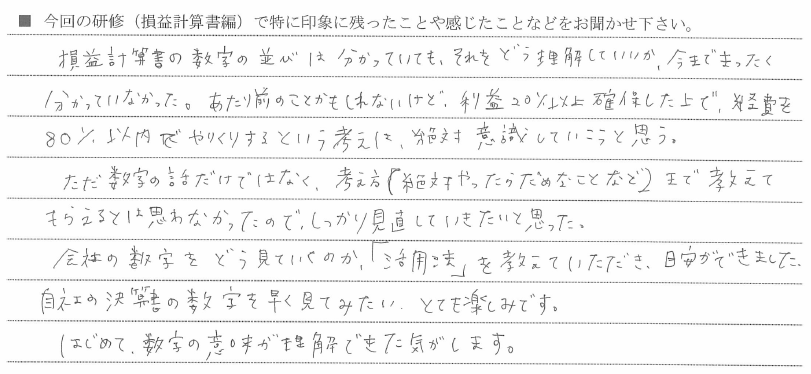 ■ 今回の研修（損益計算書編）で特に印象に残ったことや感じたことなどをお聞かせ下さい。
損益計算書の数字の並びは分かっていても、それをどう理解していいか、今まで全ったく
分かっていなかった。あたり前のことかもしれないけど、利益20%以上確保した上で、経費を
80%以内でやりくりするという考えは、絶対意識していこうと思う。
ただ数字の話だけではなく、考え方（絶対やったらだめなことなど）まで教えて
もらえるとは思わなかったので、しっかり見直していきたいと思った。
会社の数字をどう見ていくのか、「活用法」を教えていただき、目安ができました。
自社の決算書の数字を早く見てみたい、とても楽しみです。
はじめて、数字の意味が理解できた気がします。